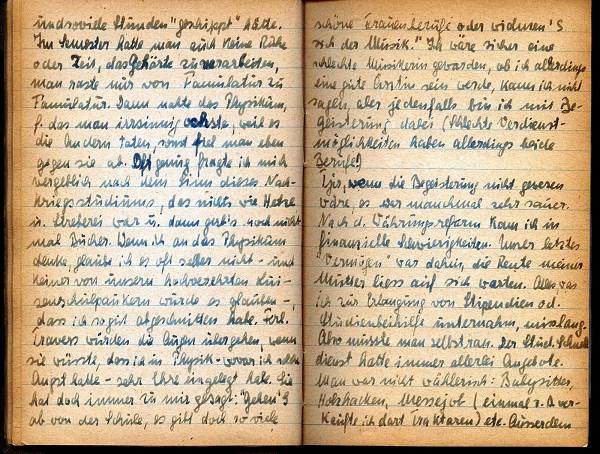 undsoviele Stunden "geschippt" hätte.
Im Semester hatte man auch keine Ruhe
oder Zeit, das Gehörte zu verarbeiten,
man raste nur von Famulatur zu
Famulatur. Dann nahte das Physikum,
f. das man irrsinnig ochste, weil es
die Andern taten, sonst fiel man eben
gegen sie ab. Oft genug fragte ich mich
vergeblich nach dem Sinn dieses Nach-
kriegsstudiums, das nichts wie Hetze
u. Streberei war u. dann gab's noch nicht
mal Bücher. Wenn ich an das Physikum
denke, glaube ich es oft selber nicht - und
keiner von unsern hochverehrten Lui-
senschulpaukern würde es glauben -,
dass ich so gut abgeschnitten habe. Frl.
Travers würden die Augen übergehen, wenn
sie wüsste, dass ich in Physik - wovor ich solche
Angst hatte - sehr Ehre eingelegt habe. Sie
hat doch immer zu mir gesagt: "Gehen'S
ab von der Schule, es gibt doch so viele
schöne Frauenberufe oder widmen'S
sich der Musik." Ich wäre sicher eine
schlechte Musikerin geworden, ob ich allerdings
eine gute Ärztin sein werde, kann ich nicht
sagen, aber jedenfalls bin ich mit Be-
geisterung dabei (schlechte Verdienst-
möglichkeiten haben allerdings beide
Berufe!)
Tja, wenn die Begeisterung nicht gewesen
wäre, es war manchmal sehr sauer.
Nach d. Währungsreform kam ich in
finanzielle Schwierigkeiten. Unser letztes
"Vermögen" war dahin, die Rente meiner
Mutter liess auf sich warten. Alles was
ich zur Erlangung von Stipendien od.
Studienbeihilfe unternahm, misslang.
Also musste man selbst ran. Der Stud. Schnell
dienst hatte immer allerlei Angebote.
Man war nicht wählerisch: Babysitter,
Holzhacken, Messejob (einmal z.B. ver-
kaufte ich dort Traktoren) etc. Ausserdem